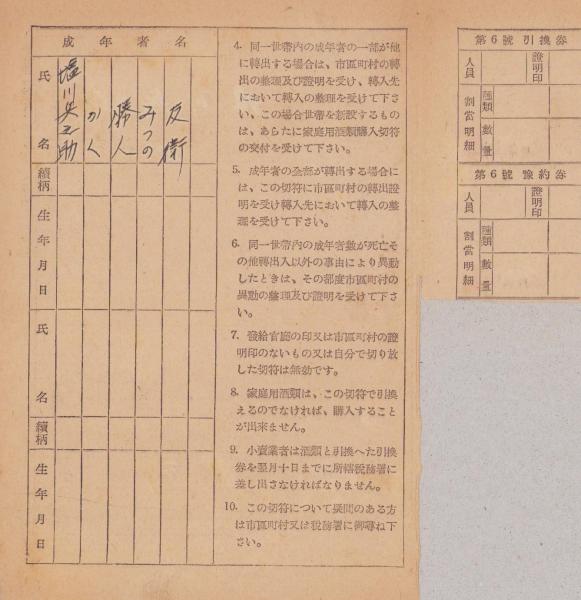 成年者名
氏名
堀川矢之助
かく
勝人
みつの
友衛
續柄
生年月日
氏名
續柄
生年月日
4. 同一世帶内の成年者の一部が他
に轉出する場合は、市區町村の轉
出の整理及び證明を受け、轉入先
において轉入の整理を受けて下さ
い、この場合世帶を新設するもの
は、あらたに家庭用酒類購入切符
の交付を受けて下さい。
5. 成年者の全部が轉出する場合に
は、この切符に市區町村の轉出證
明を受け轉入先において轉入の整
理を受けて下さい。
6. 同一世帶内の成年者數が死亡そ
の他轉出入以外の事由により異動
したときは、その都度市區町村の
異動の整理及び證明を受けて下さ
い。
7. 發給官廳の印又は市區町村の證
明印のないもの又は自分で切り放
した切符は無効です。
8. 家庭用酒類は、この切符で引換
えるのでなければ、購入すること
が出來ません。
9. 小賣業者は酒類と引換へた引換
券を翌月十日までに所轄税務署に
差し出さなければなりません。
10. この切符について疑問のある方
は市區町村又は税務署に御尋ね下
さい。
第6號引換券
人員
證明印
割當明細
種類
數量
第6號豫約券
人員
證明印
割當明細
種類
數量